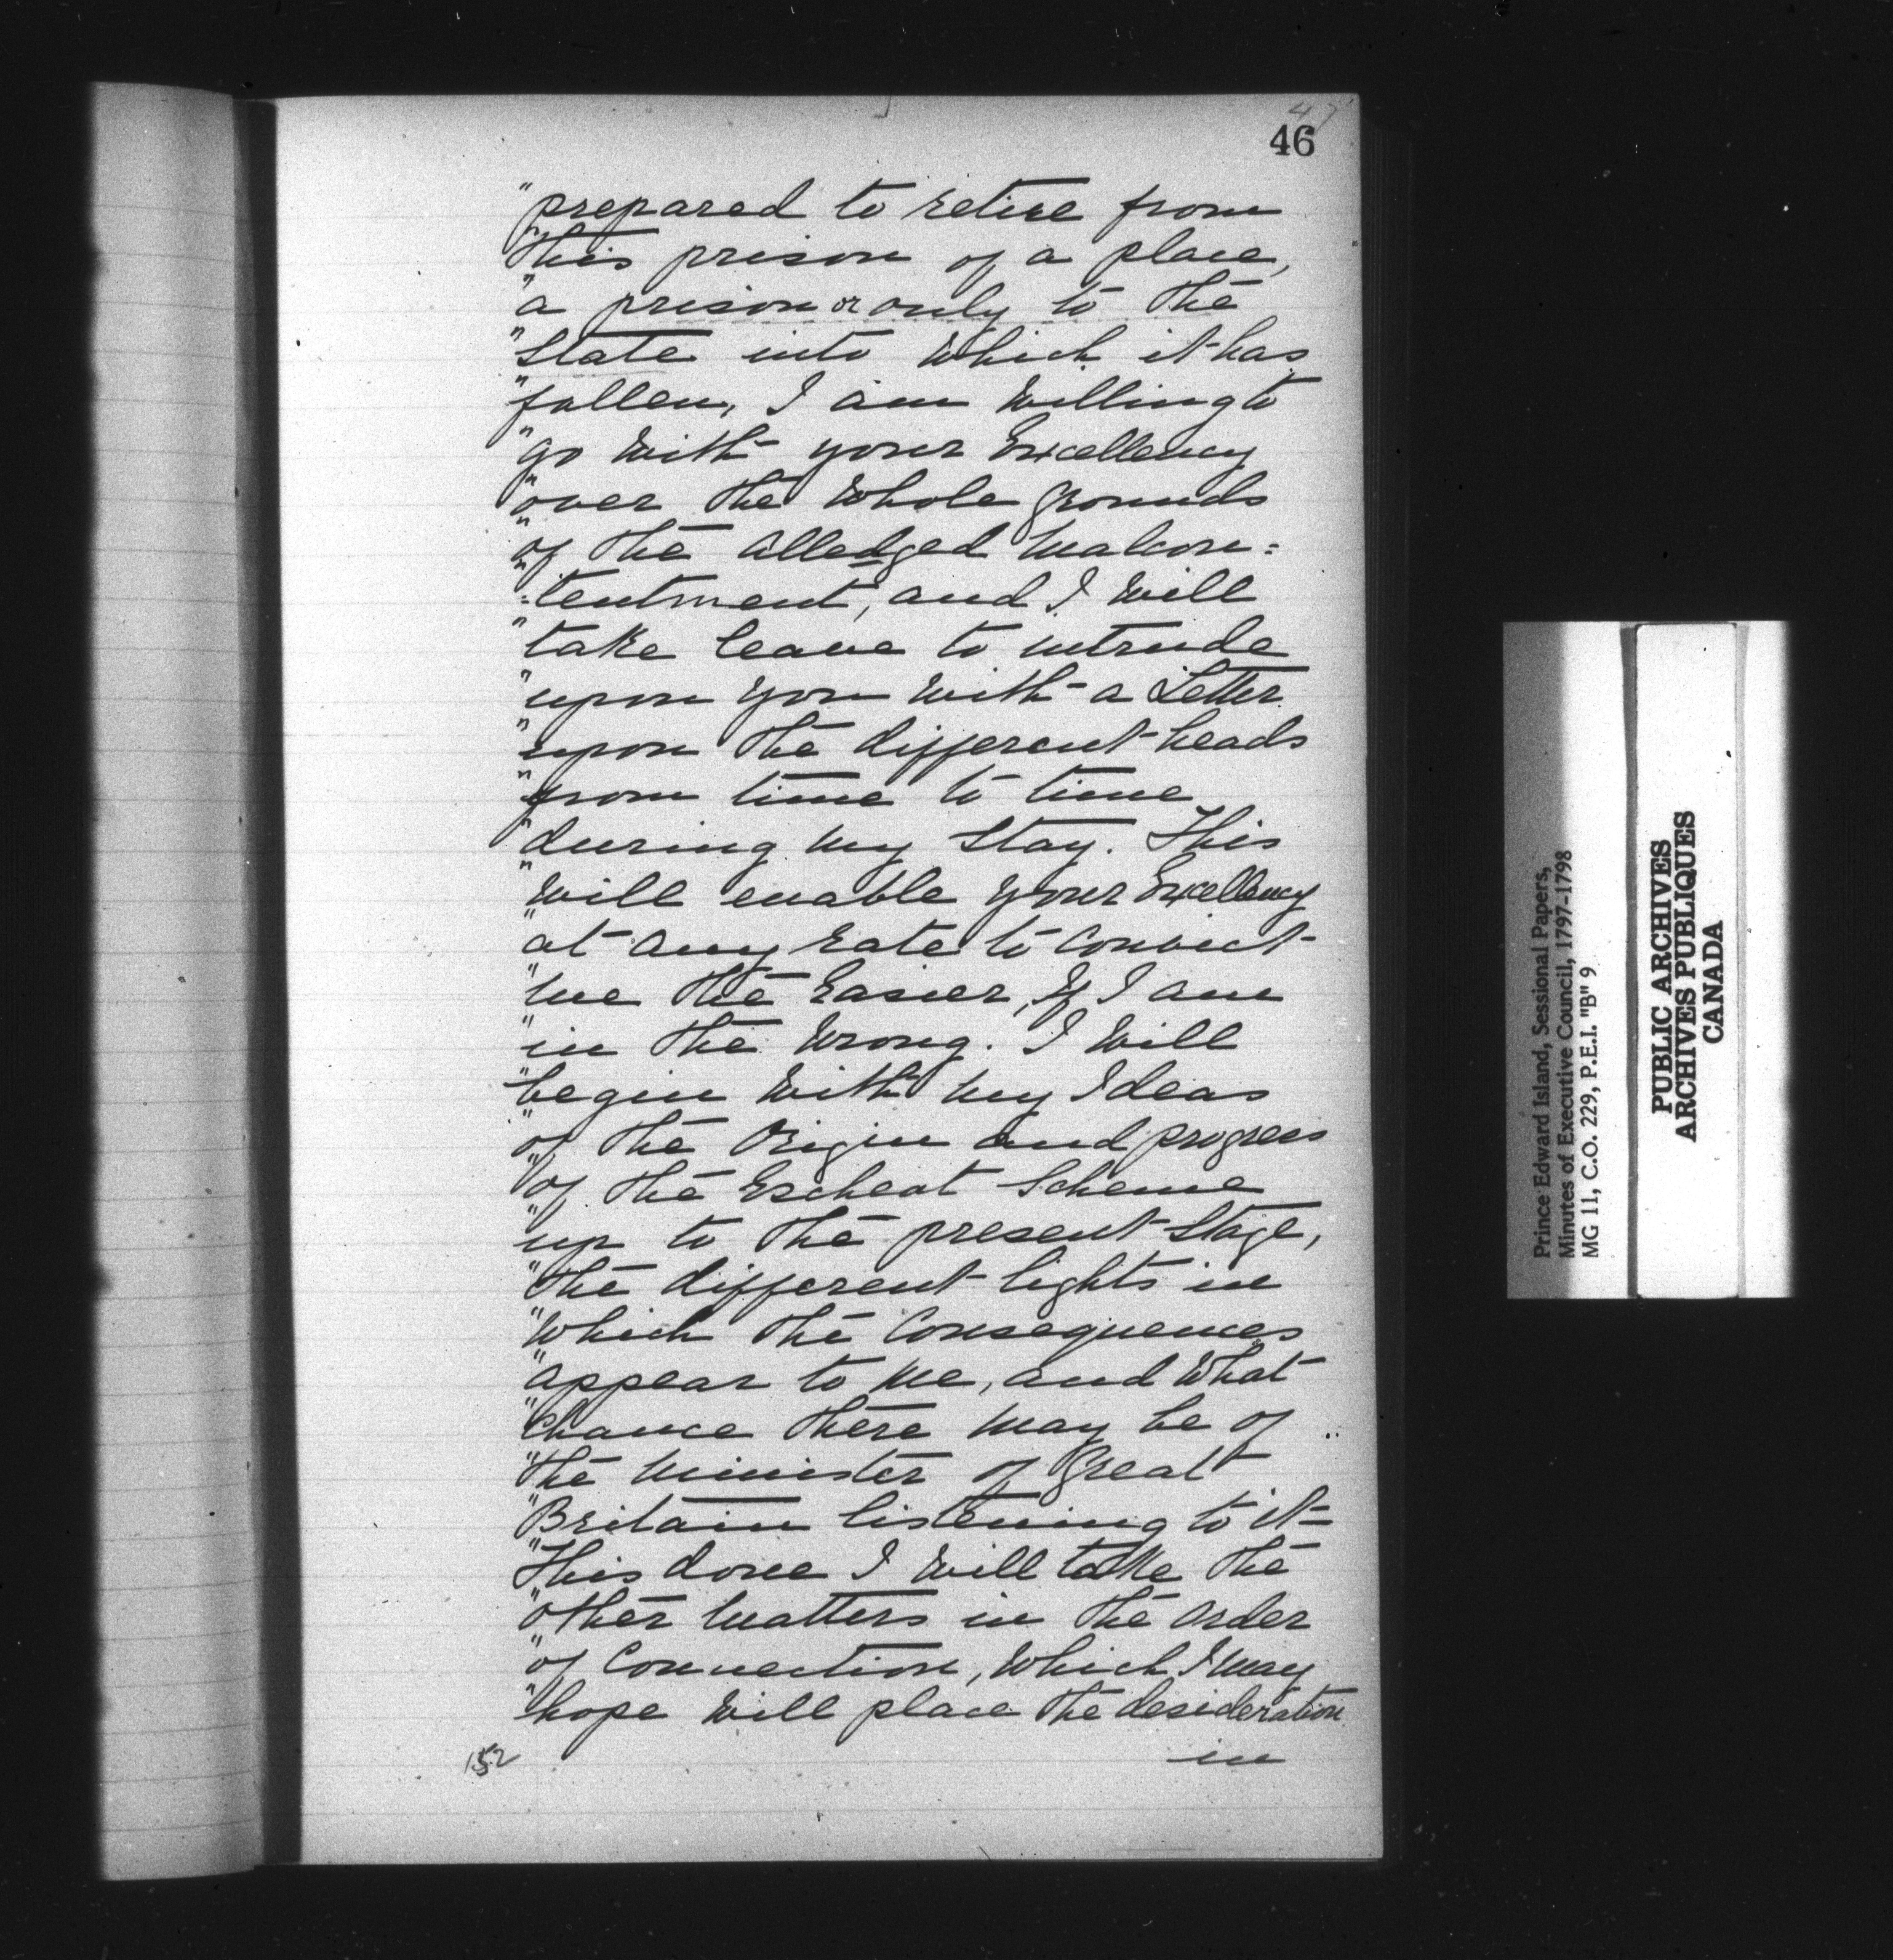 47
46
"prepared to retire from
"this prison of a place,
"a prison or only to the
"State into which it has
"fallen, I am willing to
"go with your Excellency
"over the whole grounds
"of the alledged malcon=
"=tentment, and I will
"take leave to intrude
"upon you with a Letter
"upon the different heads
"from time to time
"during my Stay. This
"will enable your Excellency
"at any rate to convict
"me the Easier, if I am
"in the wrong. I will
"begin with my Ideas
"of the Origin and progress
"of the Escheat Scheme
"up to the present Stage,
"the different lights in
"which the Consequences
"appear to me, and what
"chance there may be of
"the minister of Great
"Britain listening to it=
"This done I will take the
"other matters in the order
"of Connection, which I may
"hope will place the desideration
in
152
Prince Edward Island, Sessional Papers,
Minutes of Executive Council, 1797-1798
MG 11, C.O. 229, P.E.I. "B" 9
PUBLIC ARCHIVES
ARCHIVES PUBLIQUES
CANADA